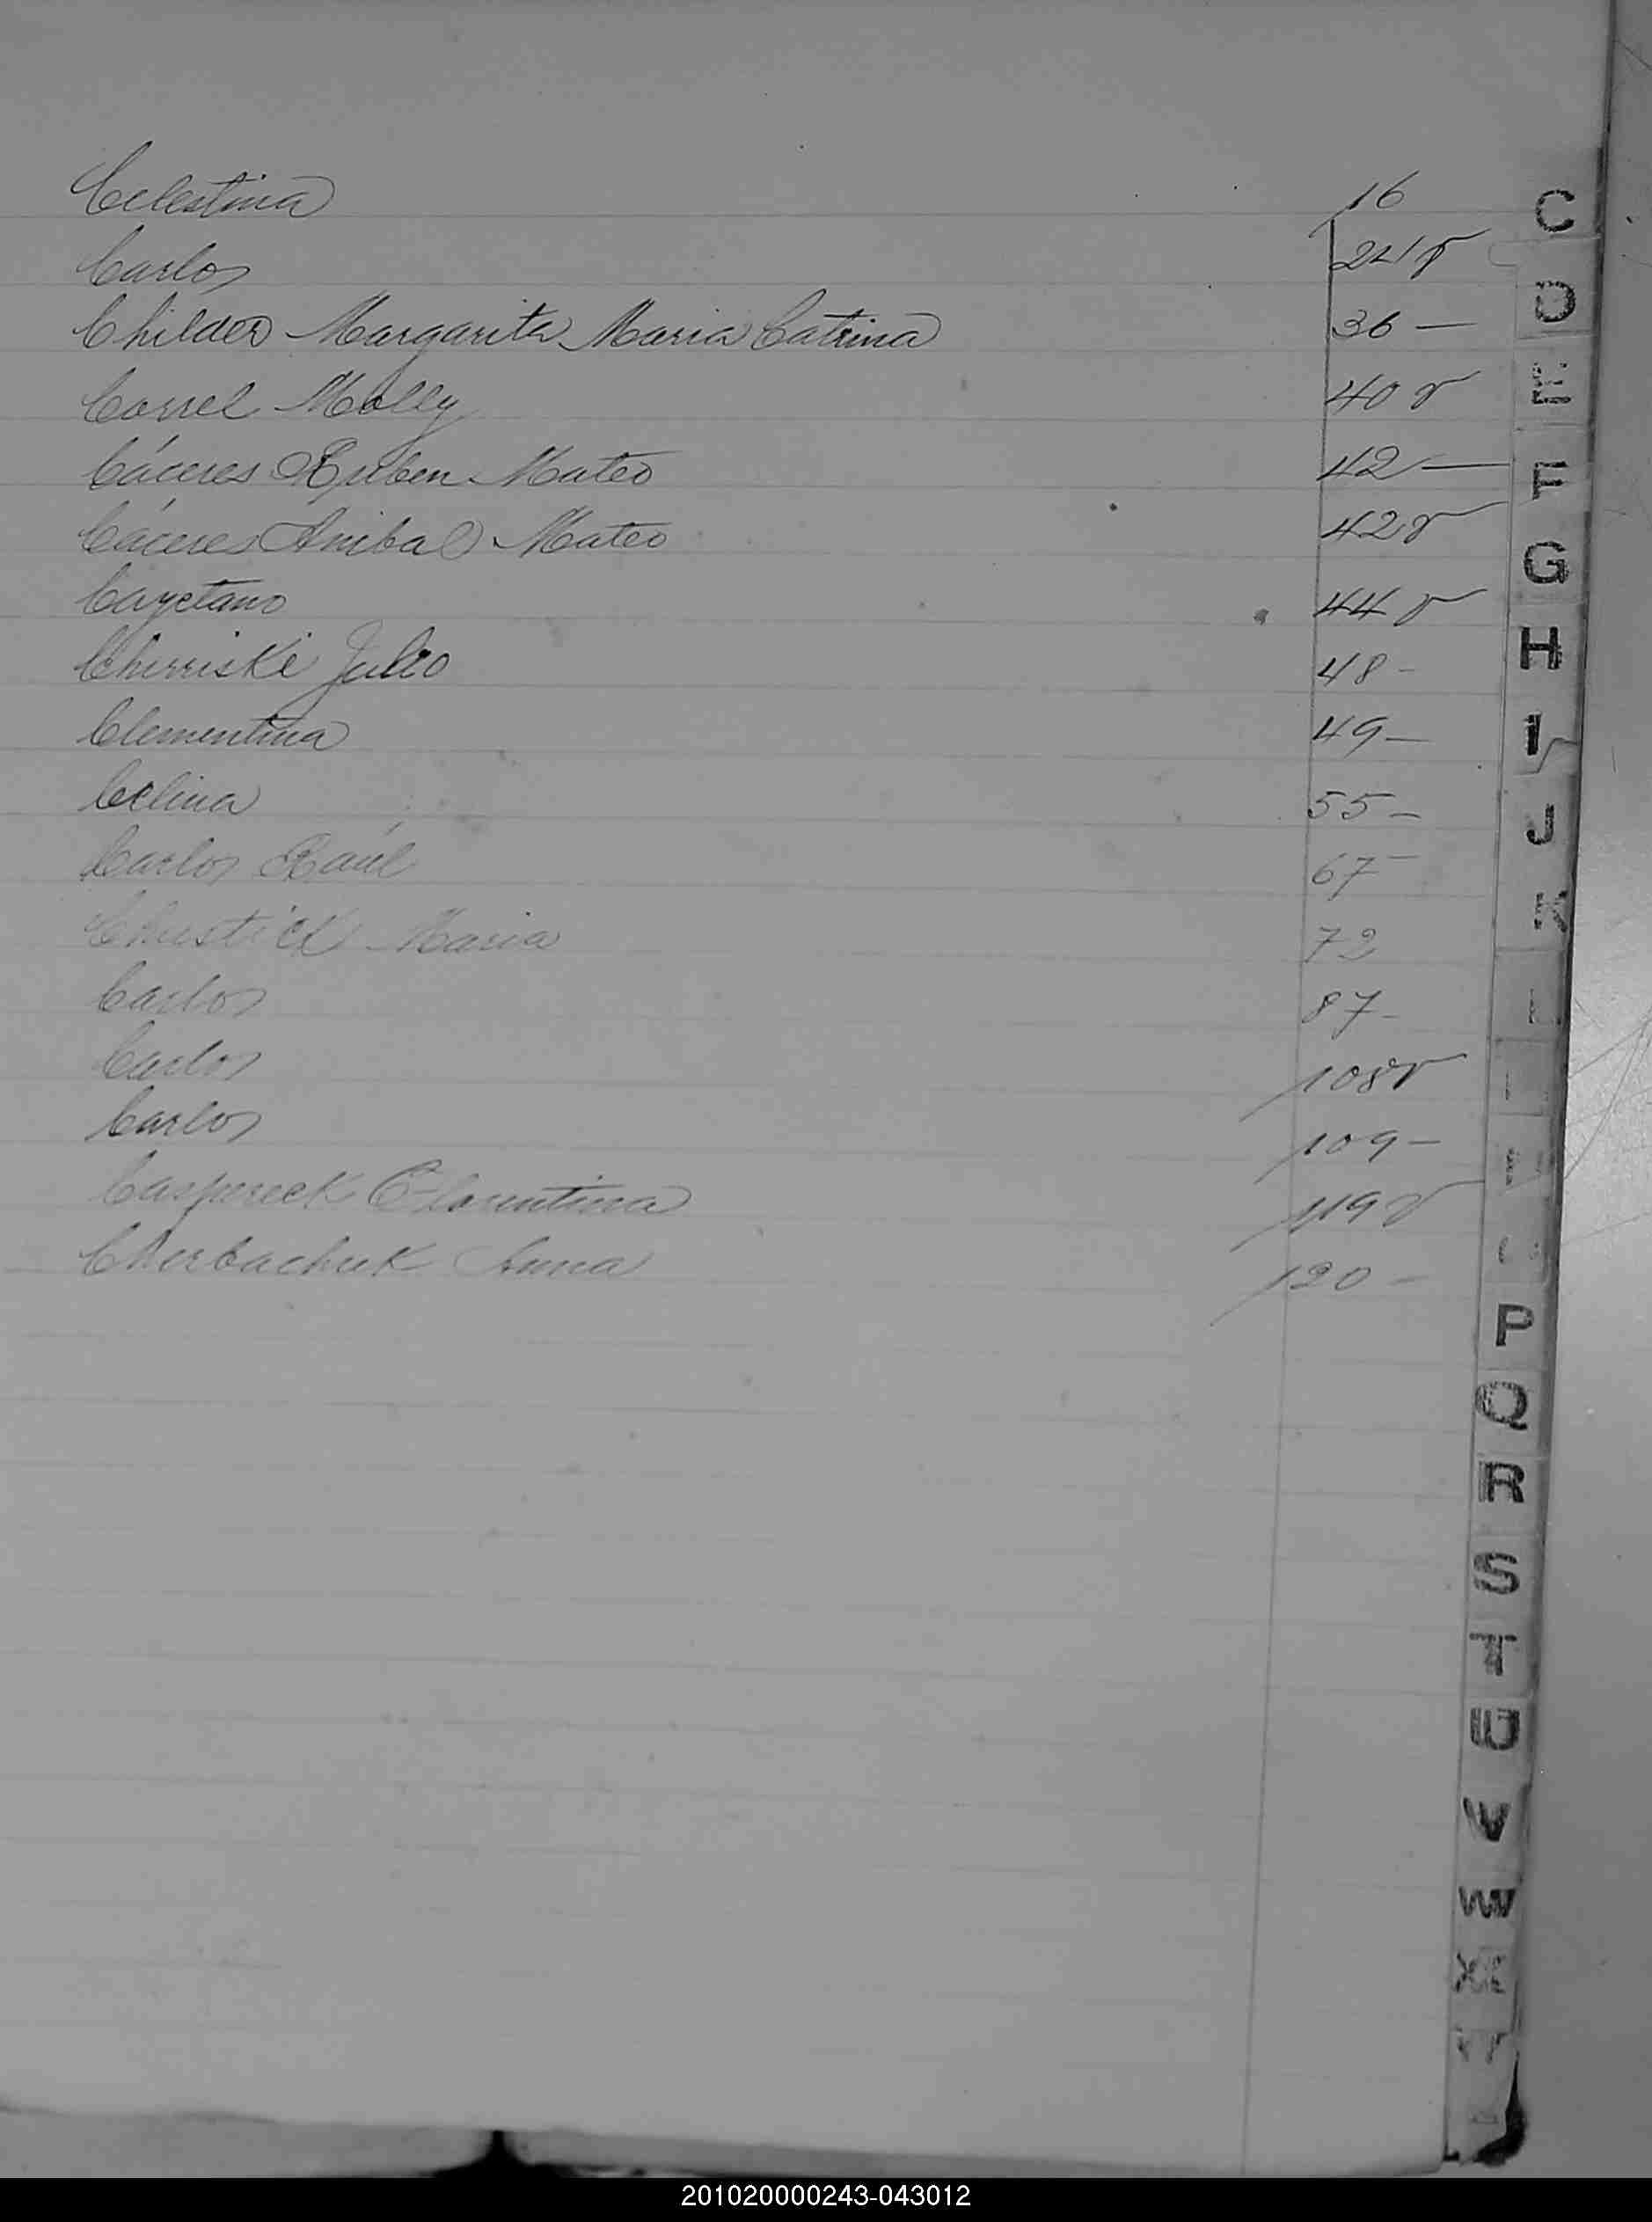 Celestina 16
Carlos 24 v
Childer Margarita Maria Catrina 36 —
Correl Molly 40 v
Cáceres Ruben Mateo 42 —
Cáceres Anibal Mateo 42 v
Cayetano 44 v
Chirriske Julio 48 -
Clementina 49 —
Celina 55 —
Carlos Raúl 67 -
Maria 72
Carlos 87 -
Carlos 108 v
Carlos 109 —
Caspereck Florentina 119 v
Cherbachuk Anna 120 -
C
D
E
F
G
H
I
J
K
L
P
Q
R
S
T
U
V
W
X
Y
201020000243-043012